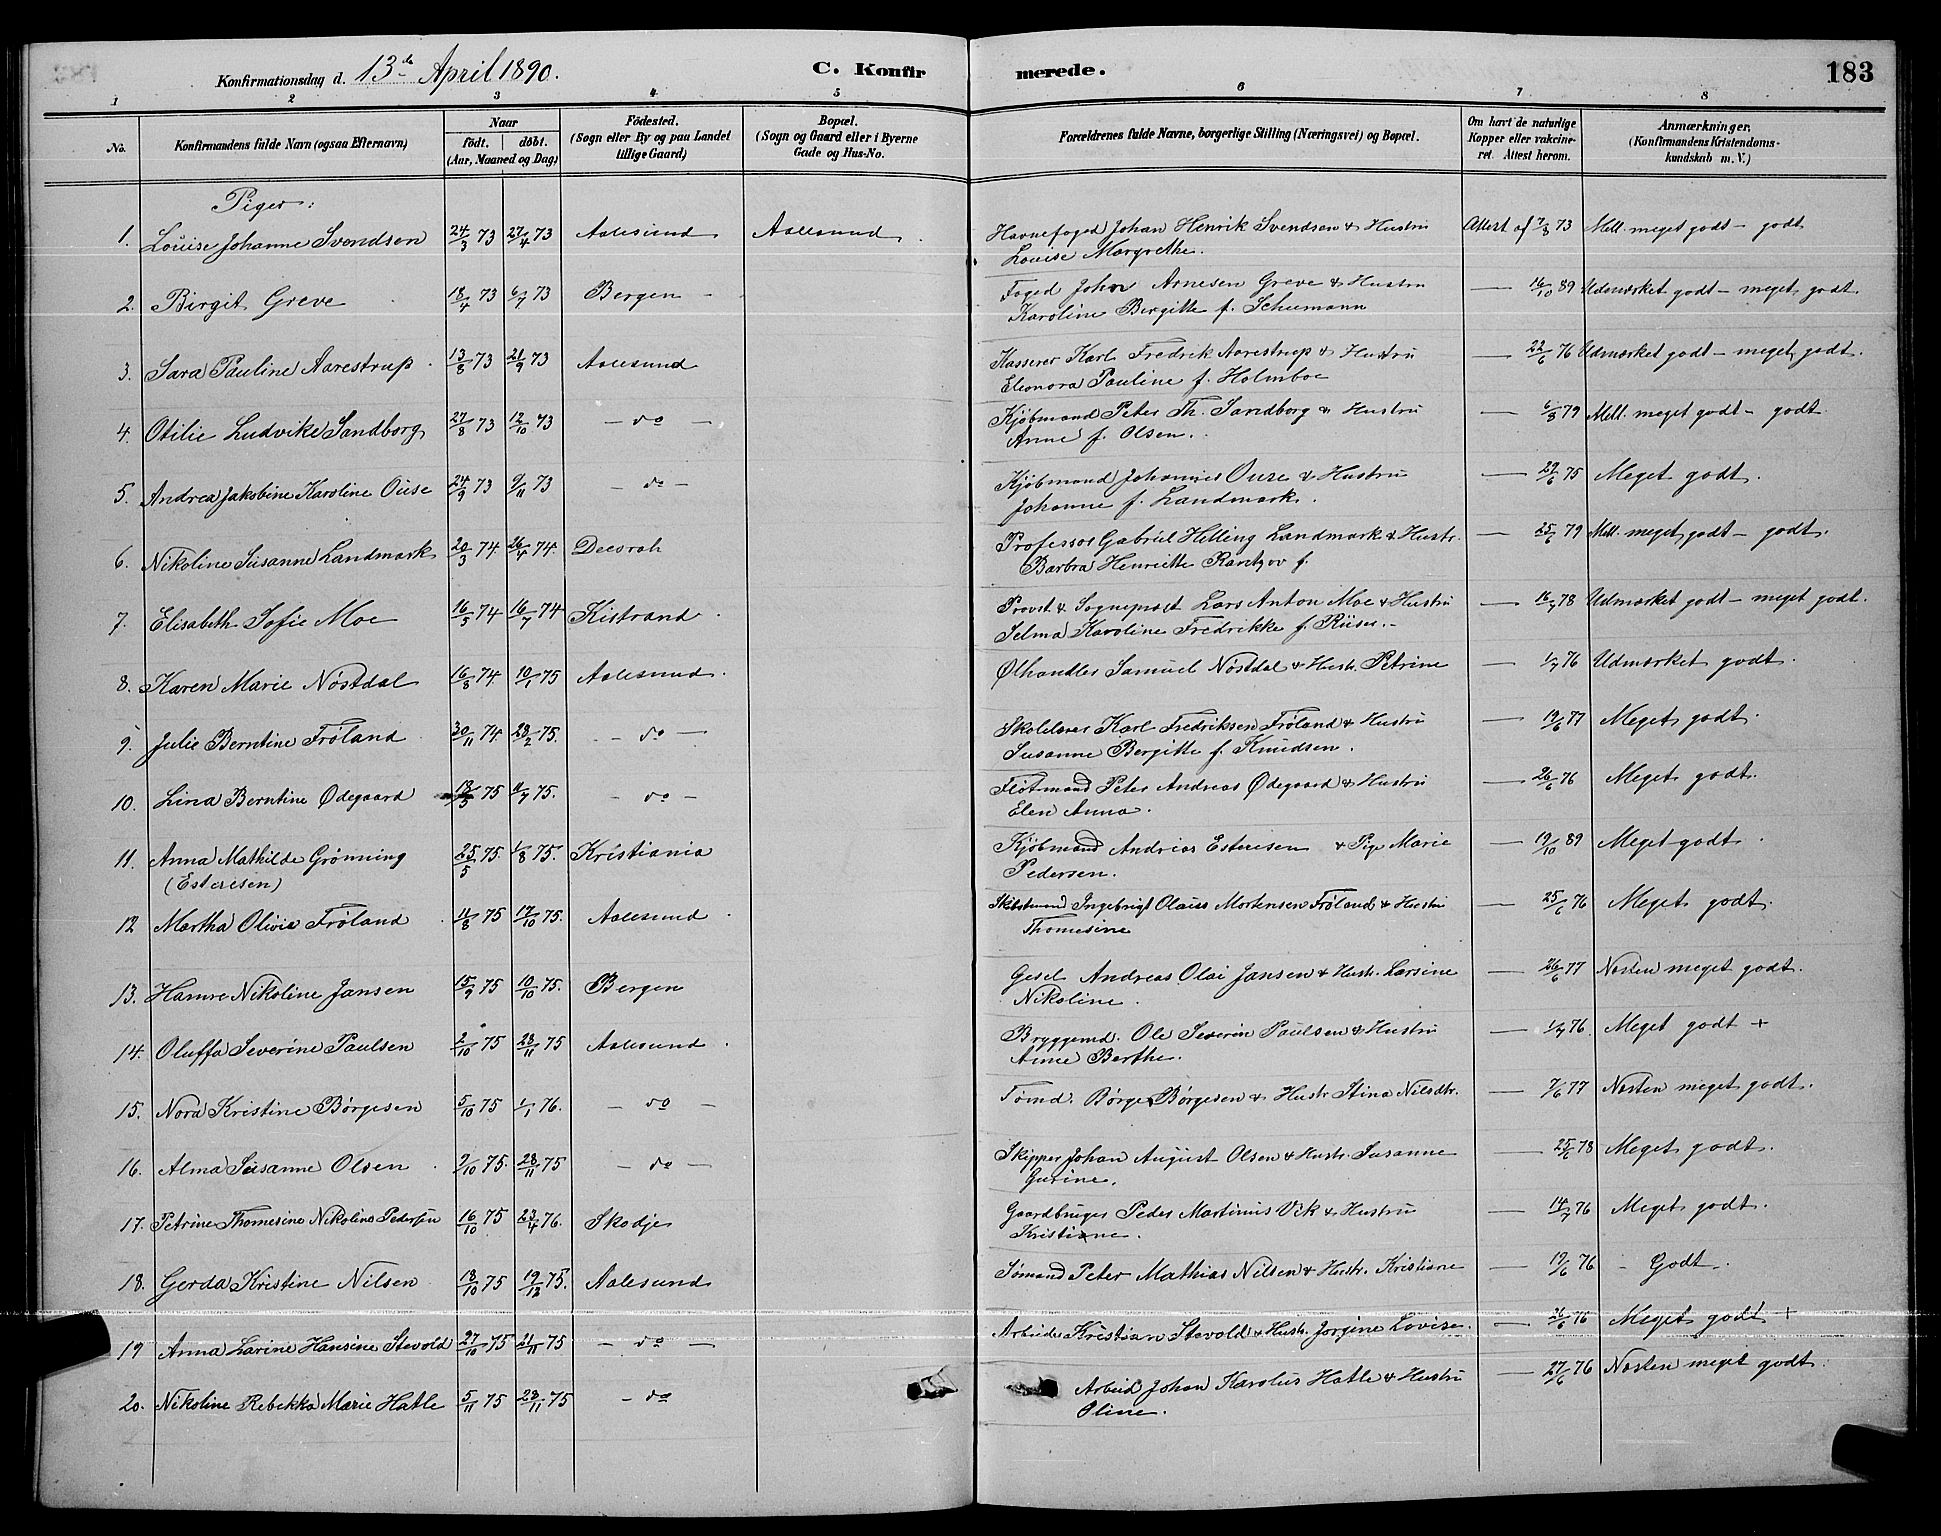 Konfirmationsdag d. 13de April 1890.
C. Konfirmerede.
183
1 2 3 4 5 6 7 8
No.
Konfirmandens fulde Navn (ogsaa Efternavn)
Naar
født. døbt.
(Aar, Maaned og Dag)
Fødested.
(Sogn eller By og paa Landet
tillige Gaard)
Bopæl.
(Sogn og Gaard eller i Byerne
Gade og Hus-No.
Forældrenes fulde Navne, borgerlige Stilling (Næringsvei) og Bopæl.
Om havt de naturlige
Kopper eller vakcine-
ret. Attest herom.
Anmærkninger,
(Konfirmandens Kristendoms-
kundskab m. V.)
Piger:
1. Louise Johanne Svendsen 24/3 73 27/4 73 Aalesund Aalesund. Havnefoged Johan Henrik Svendsen & Hustru Attest af 7/8 73 Mell. meget godt - godt
Louise Margrethe.
2. Birgit Greve 18/4 73 6/7 73 Bergen - Foged John Arnesen Greve & Hustru — 16/10 89 Udmærket godt - meget godt.
Karoline Birgitte f. Schumann
3. Sara Pauline Aarestrup. 13/8 73 21/9 73 Aalesund Kasserer Karl Fredrik Aarestrup & Hustru — 22/6 76 Udmærket godt - meget godt.
Eleonora Pauline f. Holmboe
4. Otilie Ludvike Sandborg 27/8 73 12/10 73 - do - Kjøbmand Peter Th. Sandborg & Hustru — 6/8 79 Mell. meget godt - godt
Anne f. Olsen.
5. Andrea Jakobine Karoline Ouse 24/9 73 9/11 73 - do - Kjøbmand Johannes Ouse & Hustru — 29/6 75 Meget godt.
Johanne f. Landmark.
6. Nikoline Susanne Landmark 20/3 74 26/4 74. Decorah Professor Gabriel Helling Landmark & Hustr. — 25/6 79 Mell. meget godt - godt.
Barbra Henriette Rantzov f.
7. Elisabeth Sofie Moe 16/5 74 16/7 74 Kistrand. Provst & Sogneprest Lars Anton Moe & Hustru — 16/7 78 Udmærket godt - meget godt.
Selma Karoline Fredrikke f. Riiser.-
8. Karen Marie Nøstdal 16/8 74 10/1 75 Aalesund. Ølhandler Samuel Nøstdal & Hustr. Petrine — 1/7 76 Udmærket godt.
9. Julie Berntine Frøland 30/11 74 28/2 75. - do - Skolelærer Karl Fredriksen Frøland & Hustru — 19/6 77 Meget godt.
Susanne Bergitte f. Knudsen.
10. Lina Berntine Ødegaard 13/5 75 11/7 75. - do - Fløtmand Peter Andreas Ødegaard & Hustru — 26/6 76 Meget godt.
Elen Anna.
11. Anna Mathilde Grønning 25/5 75. 1/8 75. Kristiania Kjøbmand Andreas Esterisen & Pige Marie — 19/10 89 Meget godt.
(Esterisen) Pedersen.
12 Martha Olivie Frøland. 11/8 75 17/10 75. Aalesund. Ingebrigt Olaus Mortensen Frøland & Hustru — 25/6 76 Meget godt.
Thomesine
13. Hamre Nikoline Jansen 15/9 75 10/10 75. Bergen Gesel Andreas Olai Jansen & Hustr. Larsine — 26/6 77 Næsten meget godt.
Nikoline.
14. Oluffa Severine Paulsen 2/10 75 28/11 75 Aalesund. Bryggemd. Ole Severin Paulsen & Hustru — 1/7 76. Meget godt +
Anne Berthe.
15. Nora Kristine Børgesen 5/10 75 1/1 76. - do - Tømd. Børge Børgesen & Hustr. Stina Nilsdtr. — 7/6 77 Næsten meget godt.
16. Alma Susanne Olsen. 9/10 75. 28/11 75 - do - Skipper Johan August Olsen & Hustr. Susanne — 25/6 78 Meget godt.
Gurine.
17. Petrine Thomesine Nikoline Pedersen 16/10 75 23/4 76. Skodje Gaardbruger Peder Martinus Vik & Hustru — 14/7 76 Meget godt.
Kristiane.
18. Gerda Kristine Nilsen 18/10 75 19/12 75. Aalesund Sømand Peter Mathias Nilsen & Hustr. Kristiane — 19/6 76 - Godt.
19 Anna Larine Hansine Stevold 27/10 75 21/11 75 - do - Arbeider Kristian Stevold & Hustr. Jorgine Lovise. — 26/6 76 Meget godt +
20. Nikoline Rebekka Marie Hatle 5/11 75 28/11 75 - do Arbeid. Johan Karolus Hatle & Hustru — 27/6 76 Næsten meget godt.
Oline.